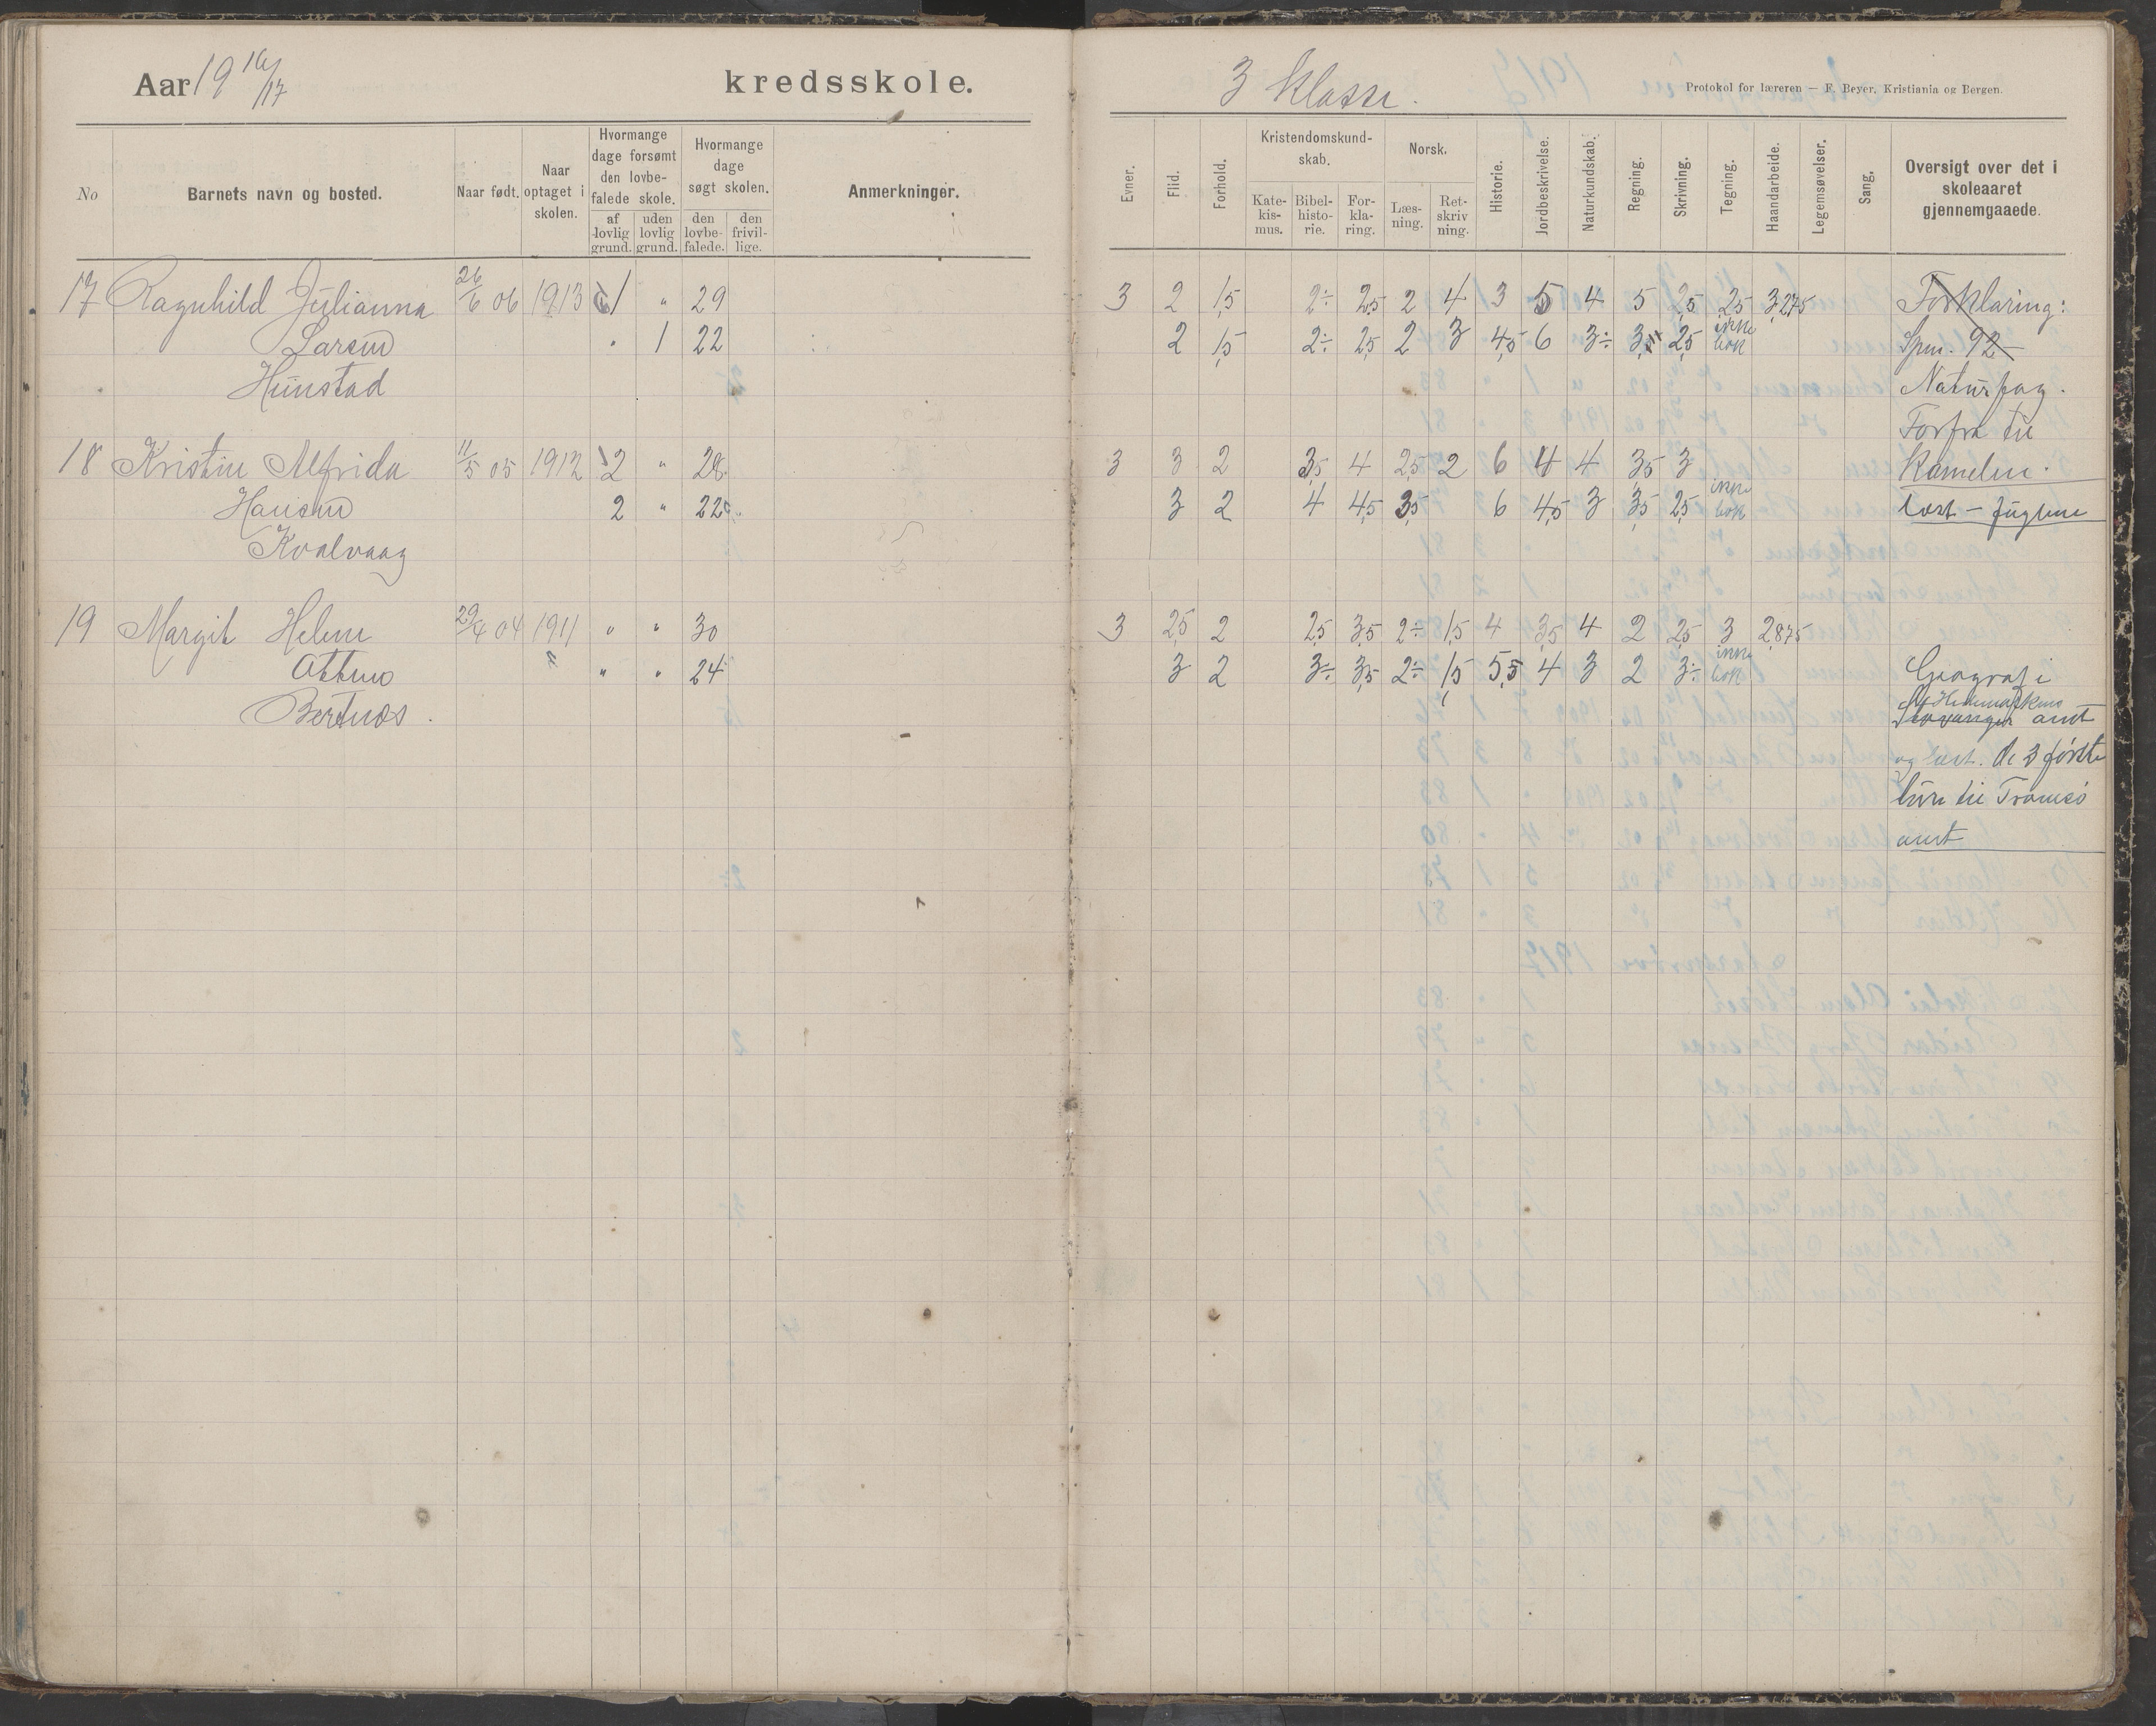 Aar 19 16/17 kredsskole.
3 Klasse. Protokol for læreren — F. Beyer, Kristiania og Bergen.
No
Barnets navn og bosted.
Naar født.
Naar optaget i skolen.
Hvormange dage forsømt den lovbefalede skole.
af lovlig grund. uden lovlig grund.
Hvormange dage søgt skolen.
den lovbefalede. den frivillige.
Anmerkninger.
Evner. Flid. Forhold.
Kristendomskundskab.
Katekismus. Bibelhistorie. Forklaring.
Norsk.
Læsning. Retskrivning.
Historie. Jordbeskrivelse. Naturkundskab. Regning. Skrivning. Tegning. Haandarbeide. Legemsøvelser. Sang.
Oversigt over det i skoleaaret gjennemgaaede.
17 Ragnhild Julianna 26/6 06 1913 1 " 29 3 2 1,5 2÷ 2,5 2 4 3 5 4 5 2,5 2,5 3,275 Forklaring:
Larsen " 1 22 2 1,5 2÷ 2,5 2 3 4,5 6 3÷ 3,5 2,5 ikke bok Spm. 92
Hunstad Naturfag.
Forfra til
18 Kristine Alfrida 11/5 05 1912 2 " 28 3 3 2 3,5 4 2,5 2 6 4 4 3,5 3 Kamelen.
Hansen 2 " 22 3 2 4 4,5 3,5 6 4,5 3 3,5 2,5 ikke bok læst - fuglene
Kvalvaag
19 Margit Helene 29/4 04 1911 " " 30 3 2,5 2 2,5 3,5 2÷ 1,5 4 3,5 4 2 2,5 3 2,875
Ottem " " " 24 3 2 3÷ 3,5 2÷ 1,5 5,5 4 3 2 3÷ ikke bok Geografi
Bertnes. Hedemarkens
Stavanger amt
og læst. de 3 første
amt